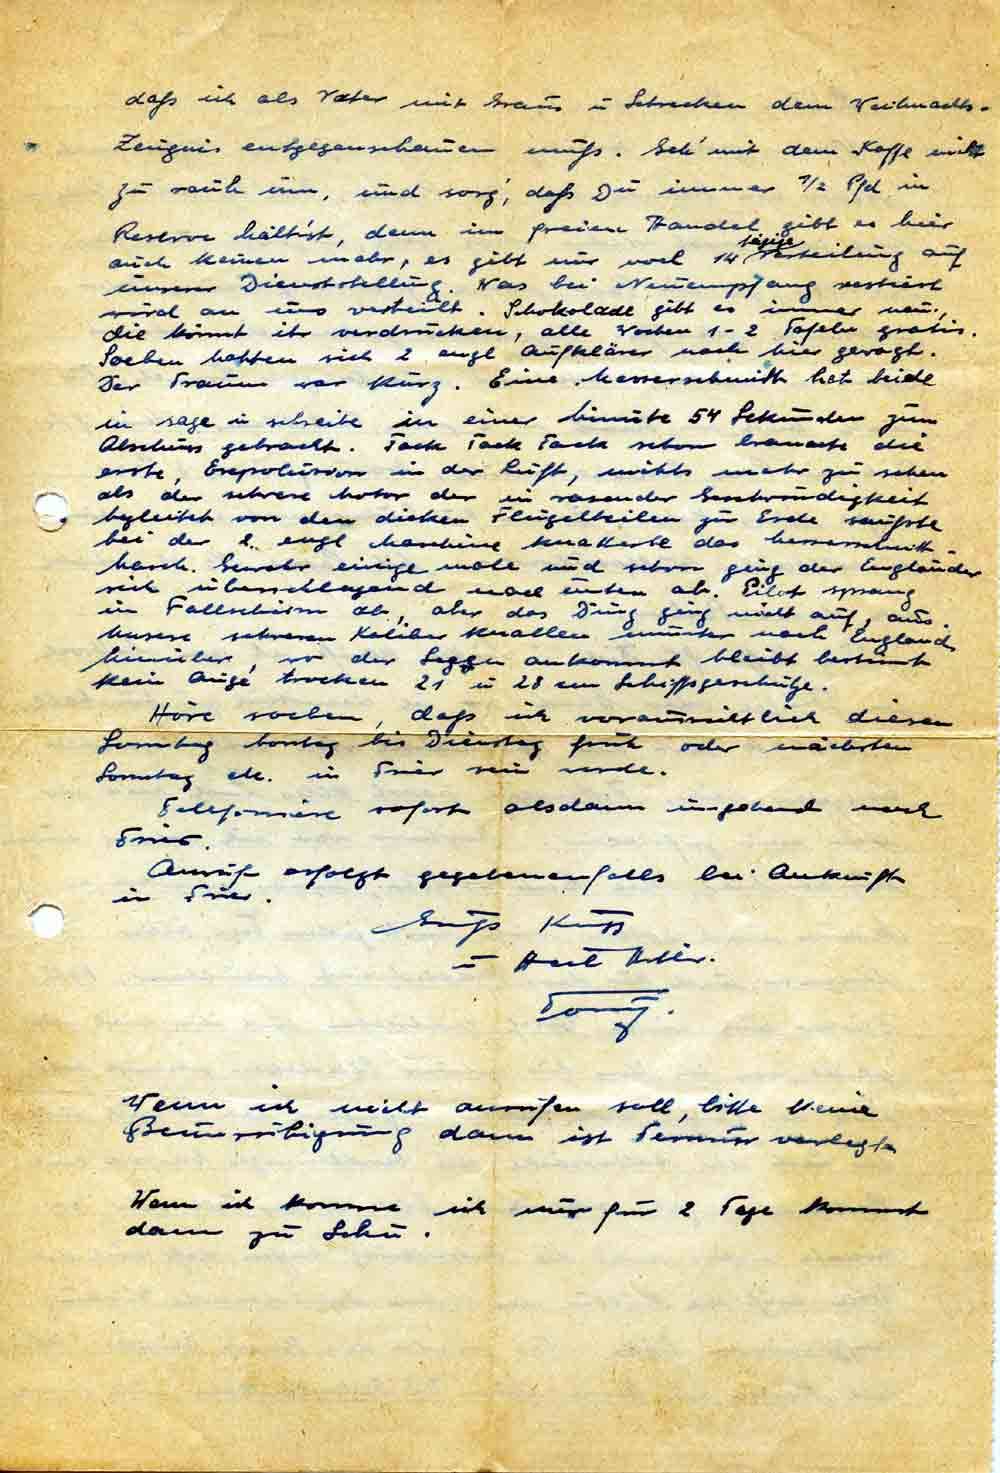 daß ich als Vater mit Graus u Schrecken dem Weihnachts-
Zeugnis entgegenschauen muß. Geh' mit dem Kaffe nicht
zu rauh um, und sorg', daß Du immer 1/2 Pfd in
Reserve hältst, denn im freien Handel gibt es hier
auch keinen mehr, es gibt nur noch 14 tägige Verteilung auf
unserer Dienststellung. Was bei Neuempfang restiert
wird an uns verteilt. Schokolade gibt es immer neu,
die könnt ihr verdrücken, alle Wochen 1-2 Tafeln gratis.
Soeben hatten sich 2 engl Aufklärer nach hier gewagt.
Der Traum war kurz. Eine Messerschmidt hat beide
in sage u schreibe in einer Minute 54 Sekunden zum
Abschuss gebracht. Tack Tack Tack schon brannte die
erste, in der Luft, nichts mehr zu sehen
als der schwere Motor der in rasender Geschwindigkeit
begleitet von den dicken Flügelteilen zur Erde sauste
bei der 2. engl Maschine knatterte das Messerschmitt-
Masch. Gewehr einige male und schon ging der Engländer
sich überschlagend nach unten ab. Pilot sprang
im Fallschirm ab, aber das Ding ging nicht auf, aus.
Unsere schweren Kaliber knallen munter nach England
hinüber, wo der Seggen ankommt bleibt bestimmt
kein Auge trocken 21 u 28 cm Schiffsgeschütze.
Höre soeben, daß ich voraussichtlich diesen
Sonntag Montag bis Dienstag früh oder nächsten
Sonntag etc. in Trier sein werde.
Telefoniere sofort alsdann umgehend nach
Trier.
Anruf erfolgt gegebenenfalls bei Ankunft
in Trier.
Gruß Kuss
u Heil Hitler.
Tony.
Wenn ich nicht anrufen soll, bitte keine
Beunruhigung dann ist Termin verlegt
Wenn ich komme ich nur für 2 Tage kommt
dann zu Schu.